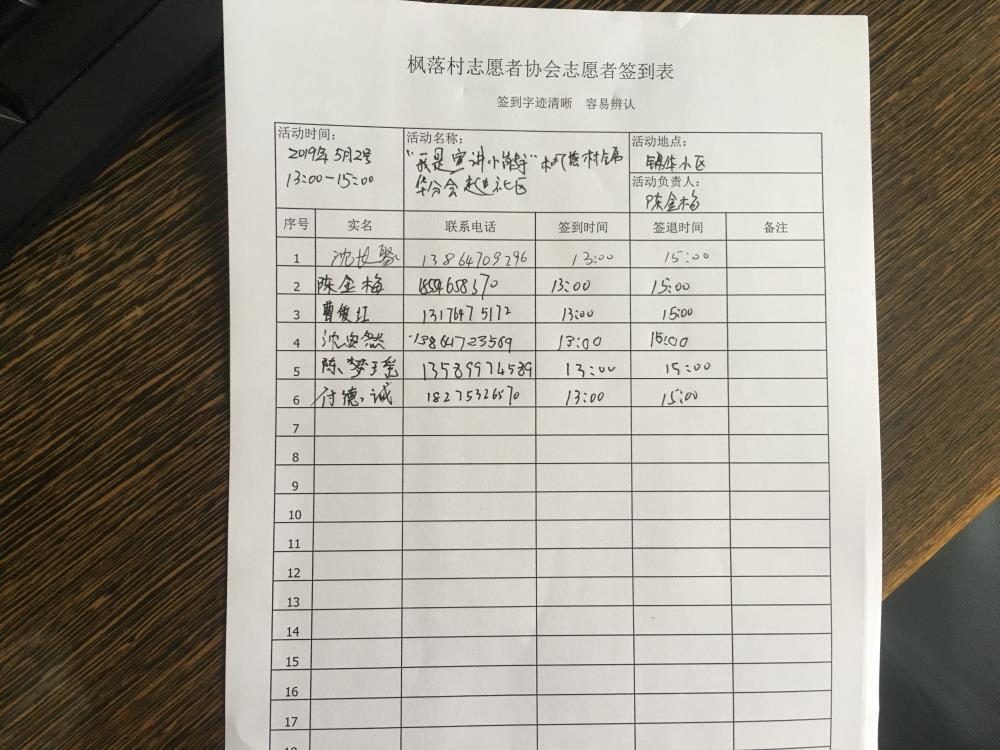 枫落村志愿者协会志愿者签到表
签到字迹清晰 容易辨认
活动时间:
2019年5月2号
13:00-15:00
活动名称:
"我是宣讲小能手"枫落村锦
华分会走进社区
活动地点:
锦华小区
活动负责人:
陈金梅
序号 实名 联系电话 签到时间 签退时间 备注
1 沈长聚 13864709296 13:00 15:00
2 陈金梅 13:00 15:00
3 曹俊红 13176475172 13:00 15:00
4 沈安然 13864723569 13:00 15:00
5 陈梦瑶 13589974589 13:00 15:00
6 付德诚 18275326570 13:00 15:00
7
8
9
10
11
12
13
14
15
16
17